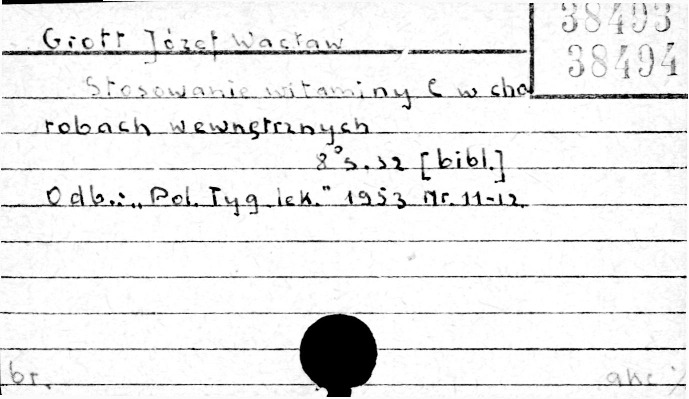 38493
38494
Grott Józef Wacław
Stosowanie witaminy C w cho
robach wewnętrznych
8° s. 32 [bibl.]
Odb.: „Pol. Tyg. lek." 1953 Nr. 11-12.
br.
akc